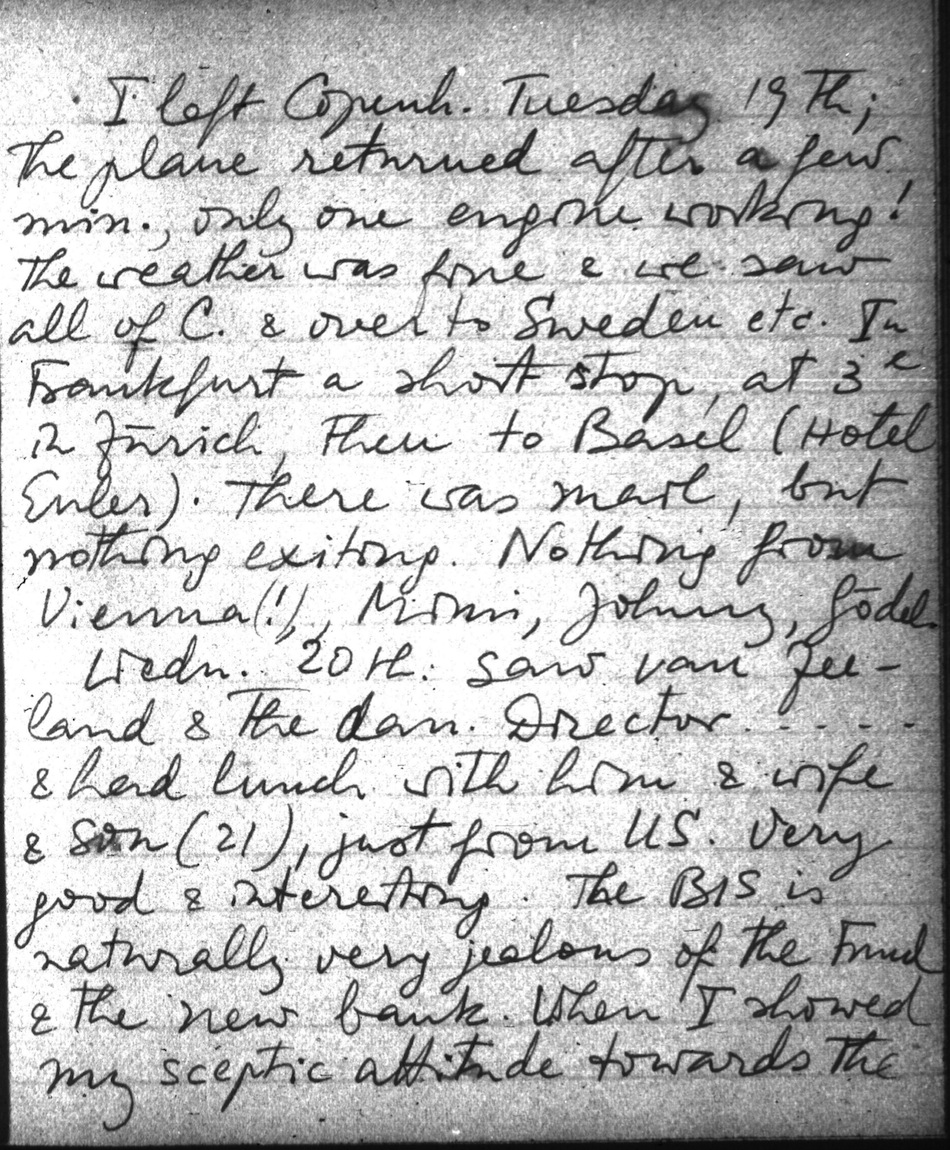 I left Copenh. Tuesday 19th;
the plane returned after a few
min., only one engine working!
The weather was fine & we saw
all of C. & over to Sweden etc. In
Frankfurt a short stop, at 3
in Zürich, then to Basel (Hotel
Euler). There was mail, but
nothing exiting. Nothing from
Vienna(!), Mimi, Johnny, Gödel.
Wedn. 20th: saw van Zee-
land & the dan. Director . - - - -
& had lunch with him & wife
& son (21), just from US. Very
good & interesting. The BIS is
naturally very jealous of the Fund
& the new bank. When I showed
my sceptic attitude towards the